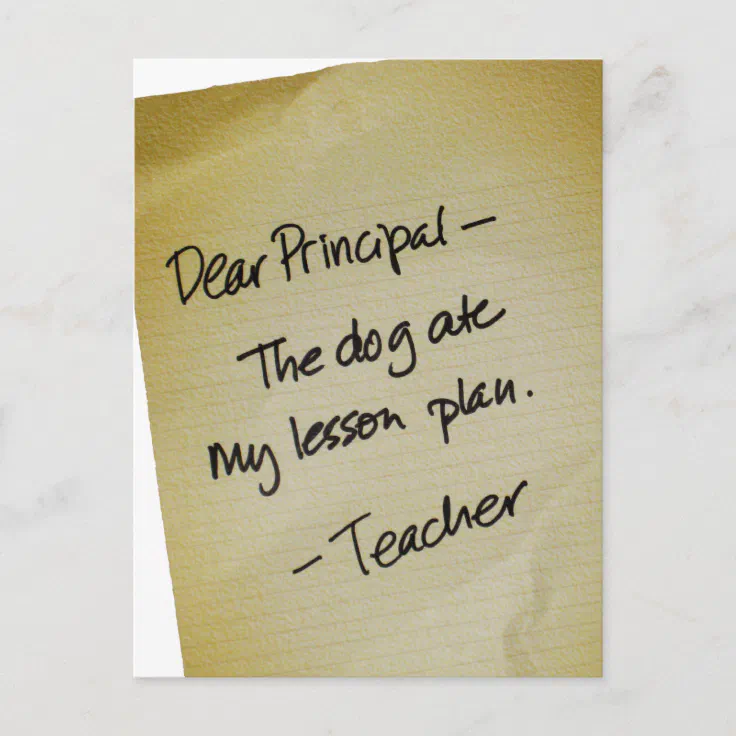 Dear Principal –
The dog ate
my lesson plan.
– Teacher